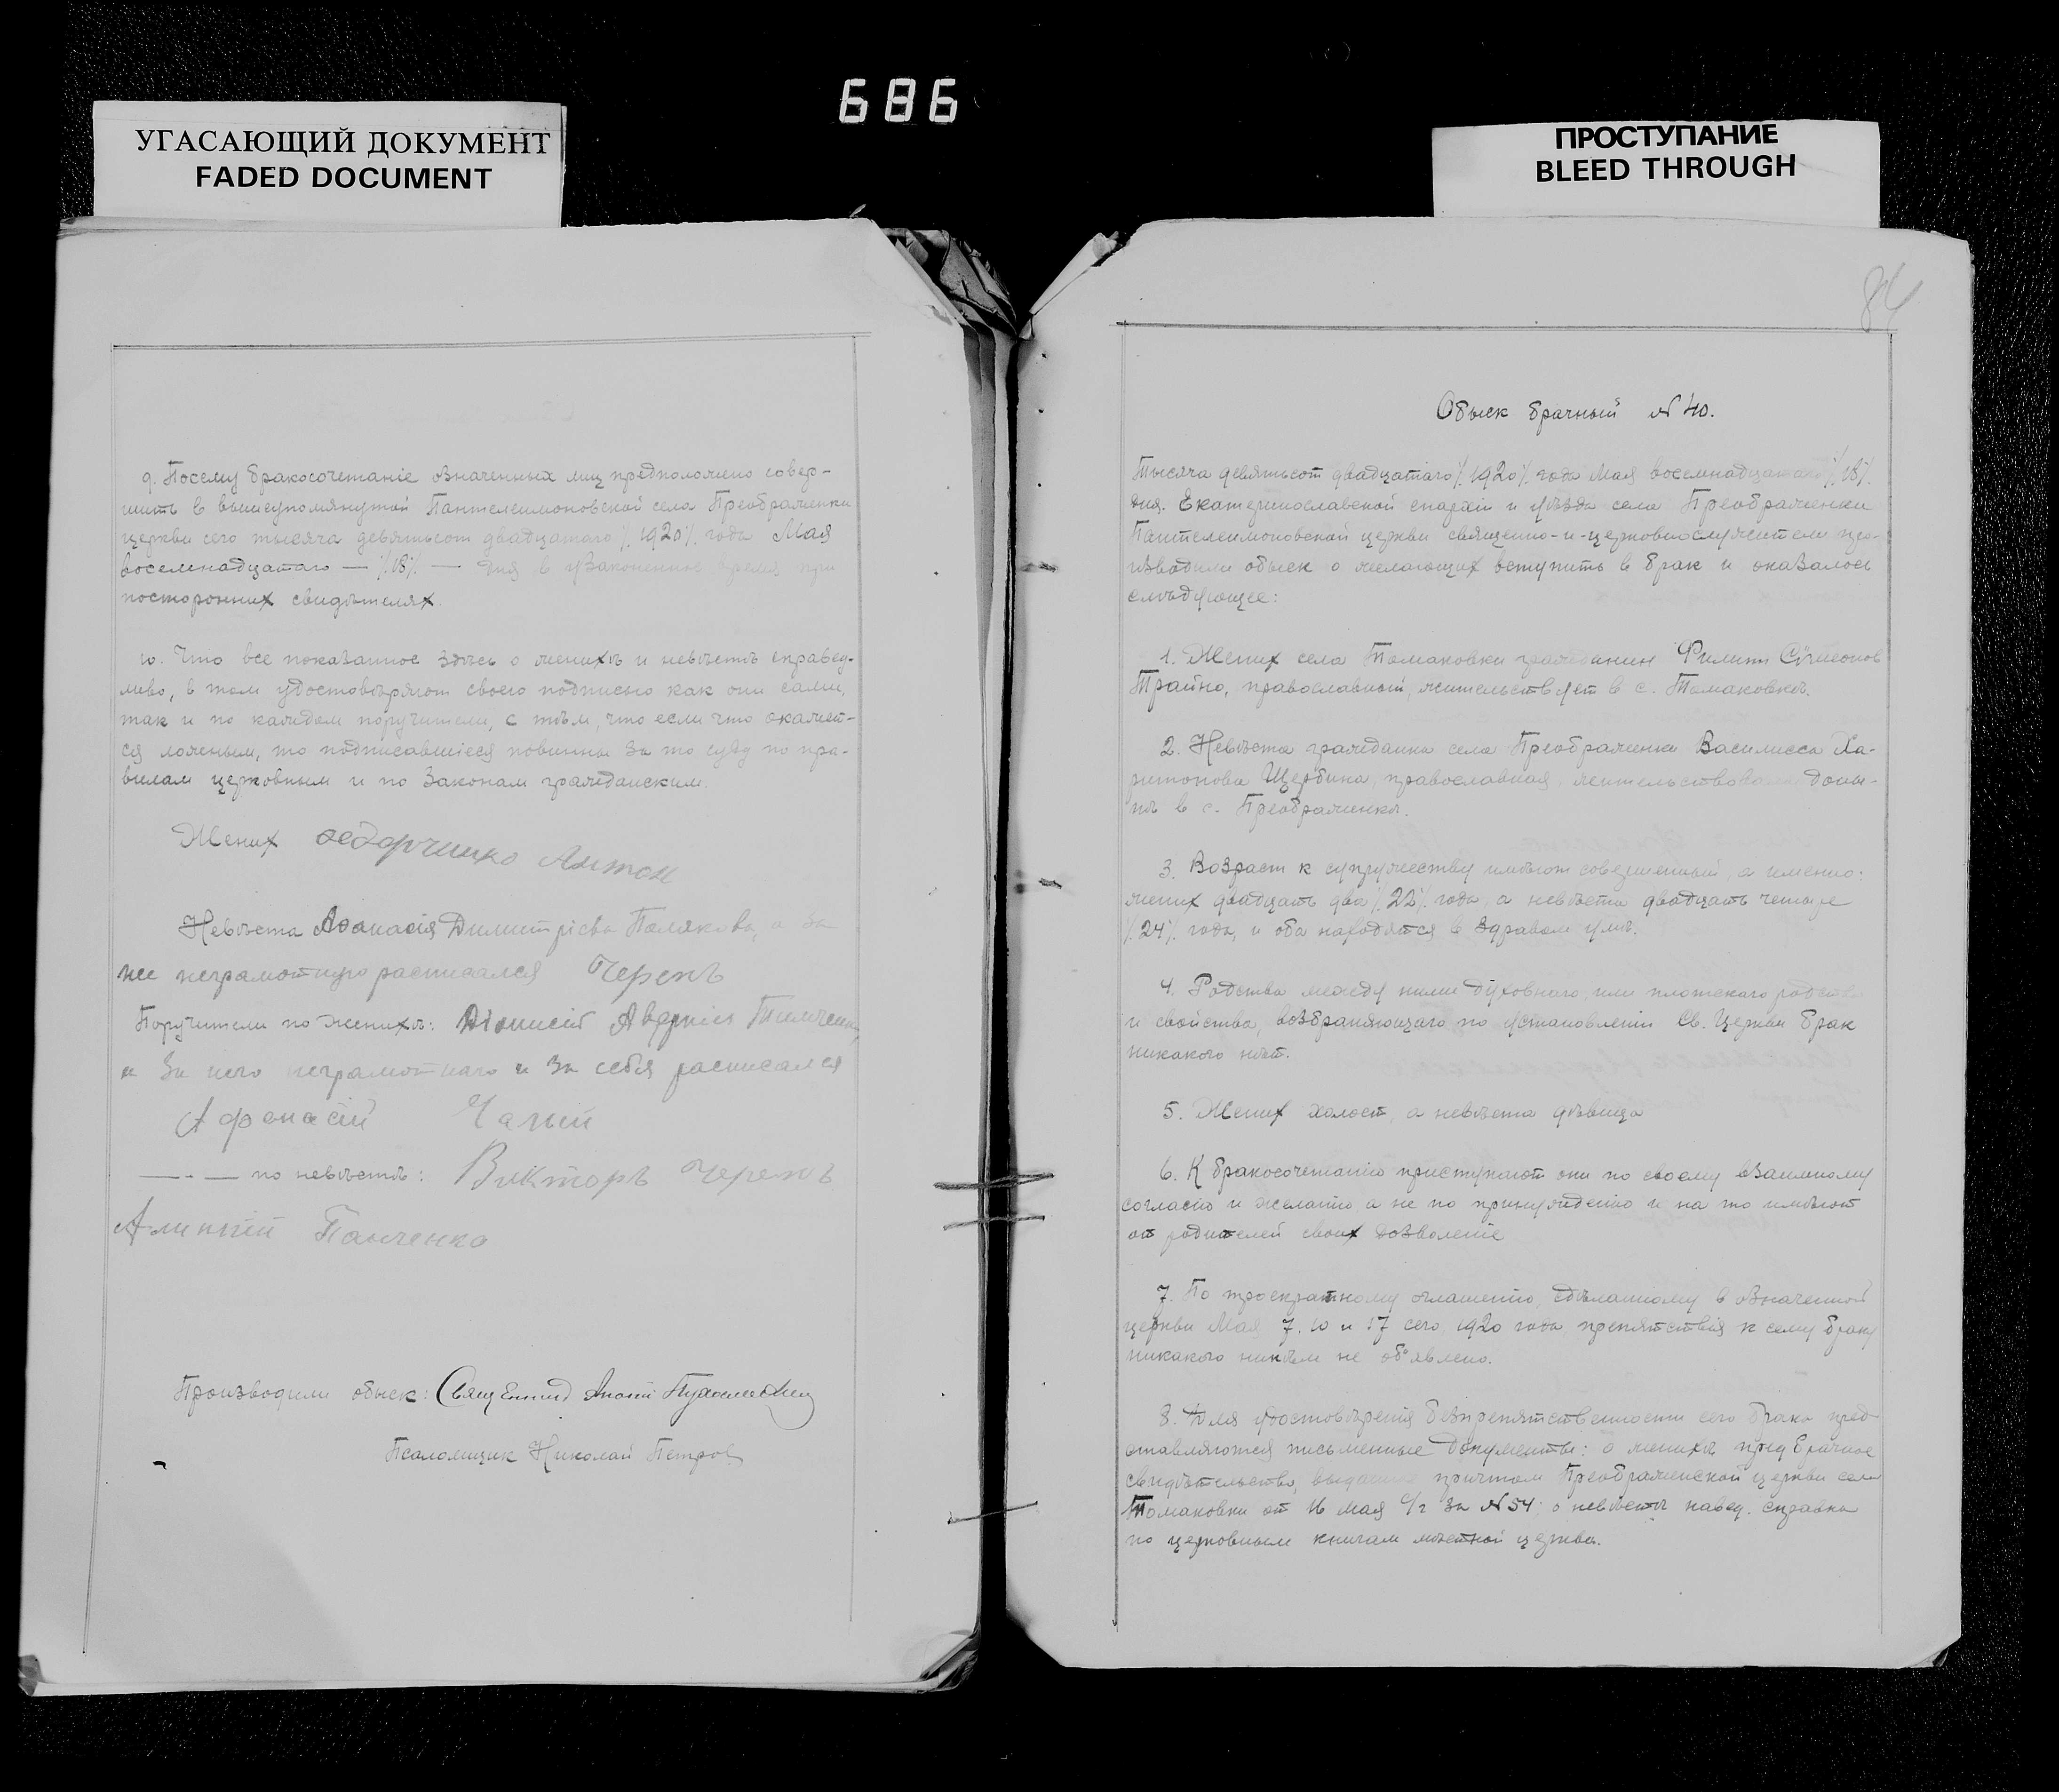 686
УГАСАЮЩИЙ ДОКУМЕНТ
FADED DOCUMENT
ПРОСТУПАНИЕ
BLEED THROUGH
9. Посему бракосочетаніе означенных лиц предположено совер-
шить в вышеупомянутой Пантелеимоновской села Преображенки
церкви сего тысяча девятьсот двадцатаго /.1920/. года Мая
восемнадцатаго — /.18/. — дня в узаконенное время при
посторонних свидѣтелях.
10. Что все показанное здѣсь о женихѣ и невѣстѣ справед-
ливо, в том удостовѣряют своею подписью как они сами,
так и по каждом поручители, с тѣм, что если что окажет-
ся ложным, то подписавшіеся повинны за то суду по пра-
вилам церковным и по законам гражданским.
Жених Федорченко Антон
Невѣста Афанасія Димитріева Полякова, а за
нее неграмотную расписался Черехъ
Поручители по женихѣ: Діонисій
и за него неграмотнаго и за себя расписался
Афонасій Чалый
— по невѣстѣ: Викторъ Черехъ
Панченко
Производили обыск: Священник
Псаломщик Николай Петров
84
Обыск брачный № 40.
Тысяча девятьсот двадцатаго /.1920/. года Мая восемнадцатаго /.18/.
дня. Екатеринославской епархіи и уѣзда села Преображенки
Пантелеимоновской церкви священно-и-церковнослужители про-
изводили обыск о желающих вступить в брак и оказалось
слѣдующее:
1. Жених села Томаковки гражданин Филипп Сѵмеонов
Трайно, православный, жительствует в с. Томаковкѣ.
2. Невѣста гражданка села Преображенки Василисса Ха-
ритонова Щербина, православная, жительствовала доны-
нѣ в с. Преображенкѣ.
3. Возраст к супружеству имѣют совершенный, а именно:
жених двадцать два /.22/. года, а невѣста двадцать четыре
/.24/. года, и оба находятся в здравом умѣ.
4. Родства между ними духовнаго, или плотскаго родства
и свойства, возбраняющаго по установленію Св. Церкви брак
никакого нѣт.
5. Жених холост, а невѣста дѣвица
6. К бракосочетанію приступают они по своему взаимному
согласію и желанію, а не по принужденію и на то имѣют
от родителей своих дозволеніе
7. По троекратному оглашенію, сдѣланному в означенной
церкви Мая 7, 10 и 17 сего, 1920 года, препятствія к сему браку
никакого никѣм не объявлено.
8. Для удостовѣренія безпрепятственности сего брака пред-
ставляются письменные документы: о женихѣ предбрачное
свидѣтельство, выданное причтом Преображенской церкви села
Томаковки от 16 мая с/г за № 54; о невѣстѣ навед. справка
по церковным книгам мѣстной церкви.